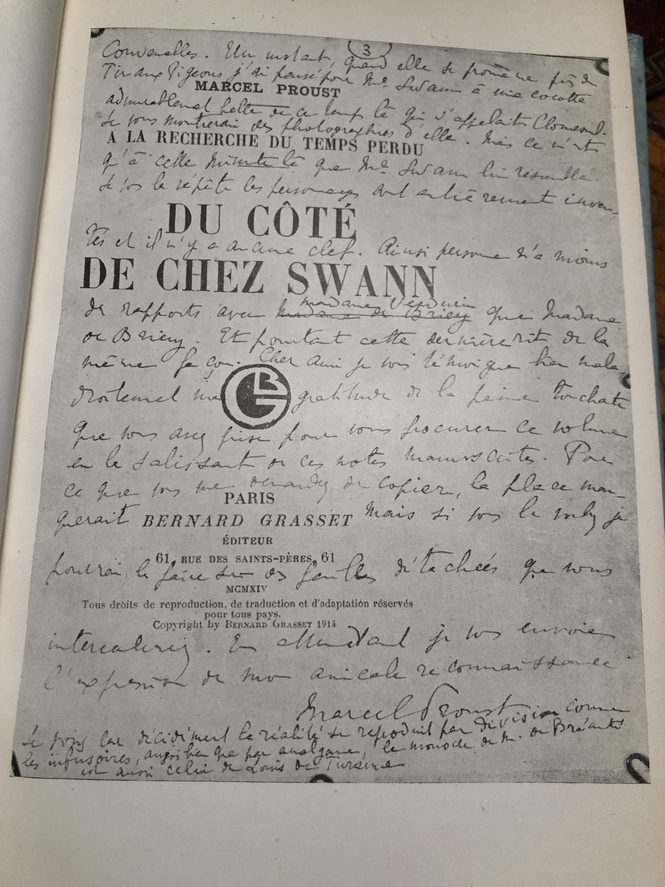 3
Convenelles. Un instant, quand elle se promène près du
Tir aux Pigeons j'ai pensé pour Me Swann à une cocotte
MARCEL PROUST
admirablement belle de ce temps là qui s'appelait Clomesnil.
Je vous montrerai des photographies d'elle. Mais ce n'est
A LA RECHERCHE DU TEMPS PERDU
qu'à cette minute là que Me Swann lui ressemble.
Je vous le répète les personnages sont entièrement inven-
DU CÔTÉ
tés et il n'y a aucune clef. Ainsi personne n'a moins
DE CHEZ SWANN
madame Verdurin
de rapports avec madame de Briey que Madame
de Briey. Et pourtant cette dernière rit de la
même façon. Cher ami je vous témoigne bien mala-
droitement ma gratitude de la peine touchante
GB
que vous avez prise pour vous procurer ce volume
en le salissant de ces notes manuscrites. Pour
ce que vous me demandez de copier, la place man-
PARIS
querait Mais si vous le voulez je
BERNARD GRASSET
ÉDITEUR
61, RUE DES SAINTS-PÈRES, 61
pourrai le faire sur des feuilles détachées que vous
MCMXIV
Tous droits de reproduction, de traduction et d'adaptation réservés
pour tous pays.
Copyright by BERNARD GRASSET 1914
intercalerez. En attendant je vous envoie
l'expression de mon amicale reconnaissance
Marcel Proust
Je vois car décidément la réalité se reproduit par division comme
les infusoires, aussi bien que par amalgame, le monocle de M. de Bréauté
est aussi celui de Louis de Turenne